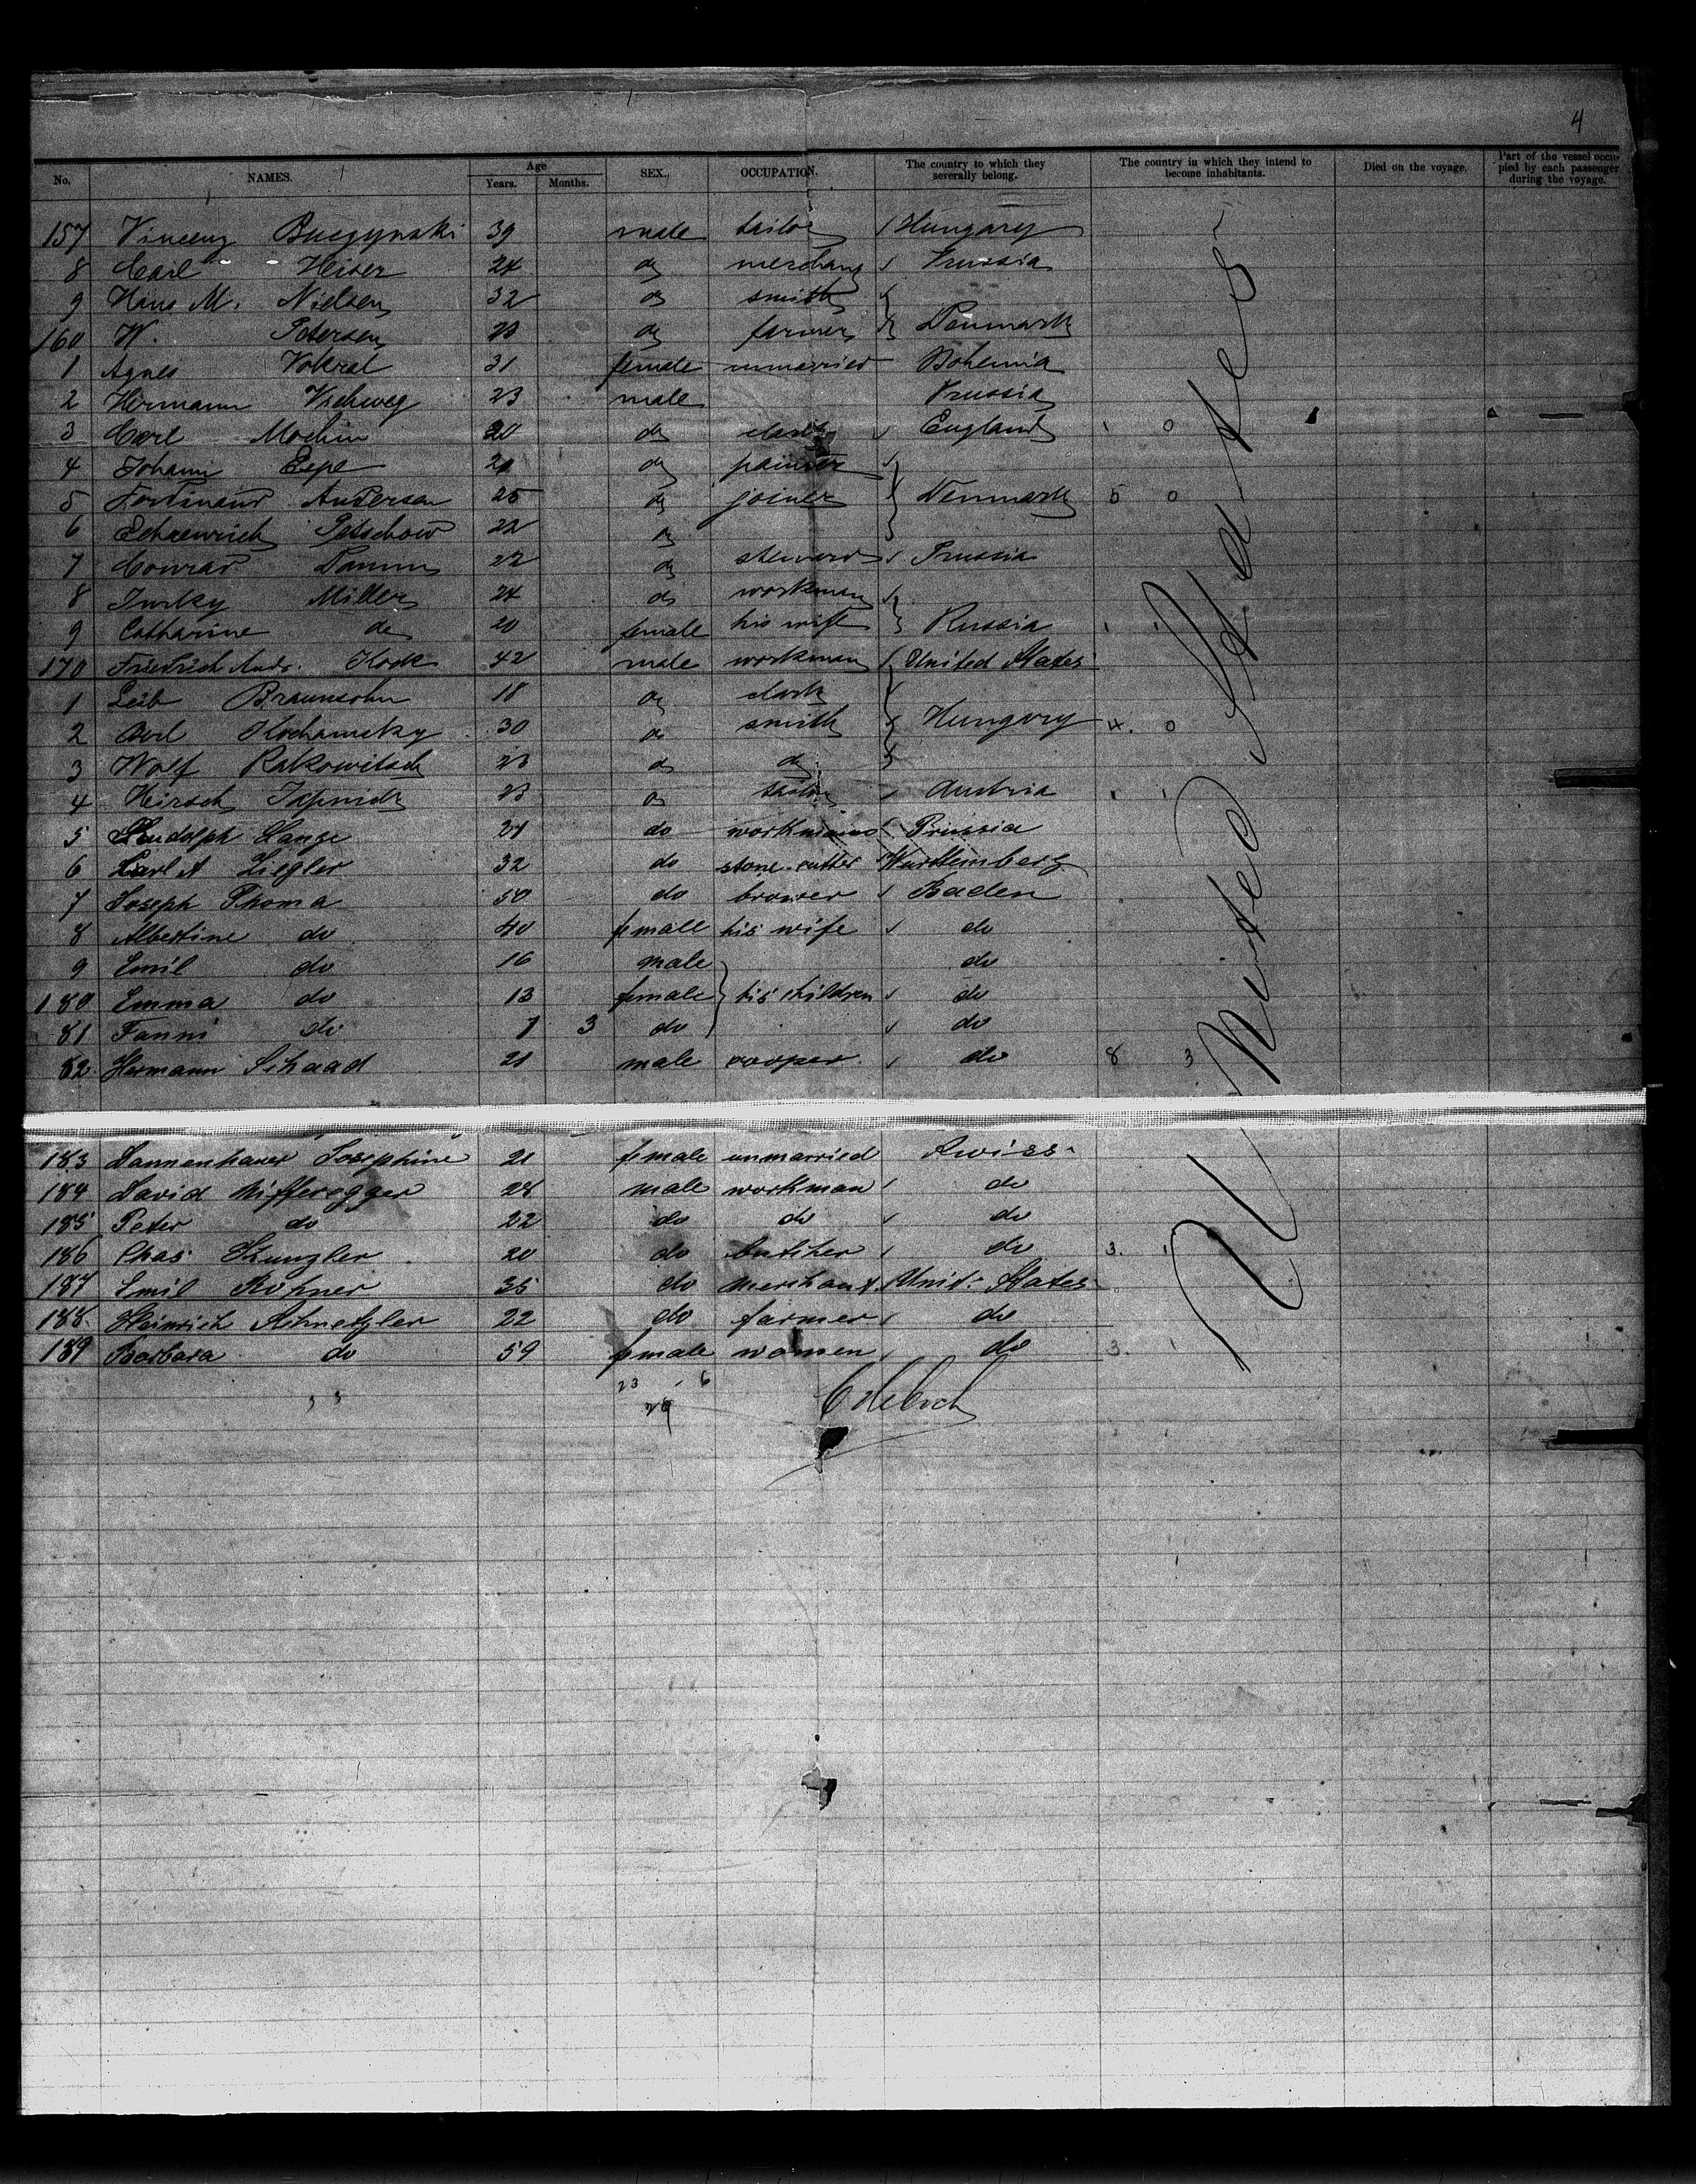 4
No. NAMES. Age Years. Months. SEX. OCCUPATION. The country to which they severally belong. The country in which they intend to become inhabitants. Died on the voyage. Part of the vessel occupied by each passenger during the voyage.
157 Vincenz Buczynski 39 male tailor Hungary
8 Carl Heiser 24 do merchant Prussia
9 Hans M. Nielsen 32 do smith
160 W. Petersen 23 do farmer Denmark
1 Agnes Vokral 31 female unmarried Bohemia
2 Hermann 23 male Prussia
3 Carl Mochin 20 do England 1 0
4 Johann Expe do painter
5 Ferdinand Andersen 25 do joiner Denmark 5 0
6 Petschow 22 do
7 Conrad Damm 22 do steward Prussia
8 Miller 24 do workman
9 Catharine do 20 female his wife Russia 1 1
170 Friedrich Andr. Kock 42 male workman United States
1 Leib Braunsohn 18 do clark
2 30 do smith Hungary 4. 0
3 Wolf Rakowitsch 23 do do
4 Hirsch 23 do tailor Austria 1 1
5 Rudolph Lange 24 do workman Prussia
6 Carl A Ziegler 32 do stone-cutter Württemberg
7 Joseph Thoma 50 do brower Baden
8 Albertine do 40 female his wife do
9 Emil do 16 male do
180 Emma do 13 female his children do
81 Fanni do 7 3 do do
82 Hermann Schaad 21 male cooper do 8 3
183 Dannenhauer Josephine 21 female unmarried Swiss
184 David Nifferegger 28 male workman do
185 Peter do 22 do do do
186 Chas Kunzler 20 do butcher do 3. 1
187 Emil Rohner 35 do merchant Unit. States
188 Heinrich Schnetzler 22 do farmer do
189 Barbara do 59 female women do 3. 1
23 6
United States